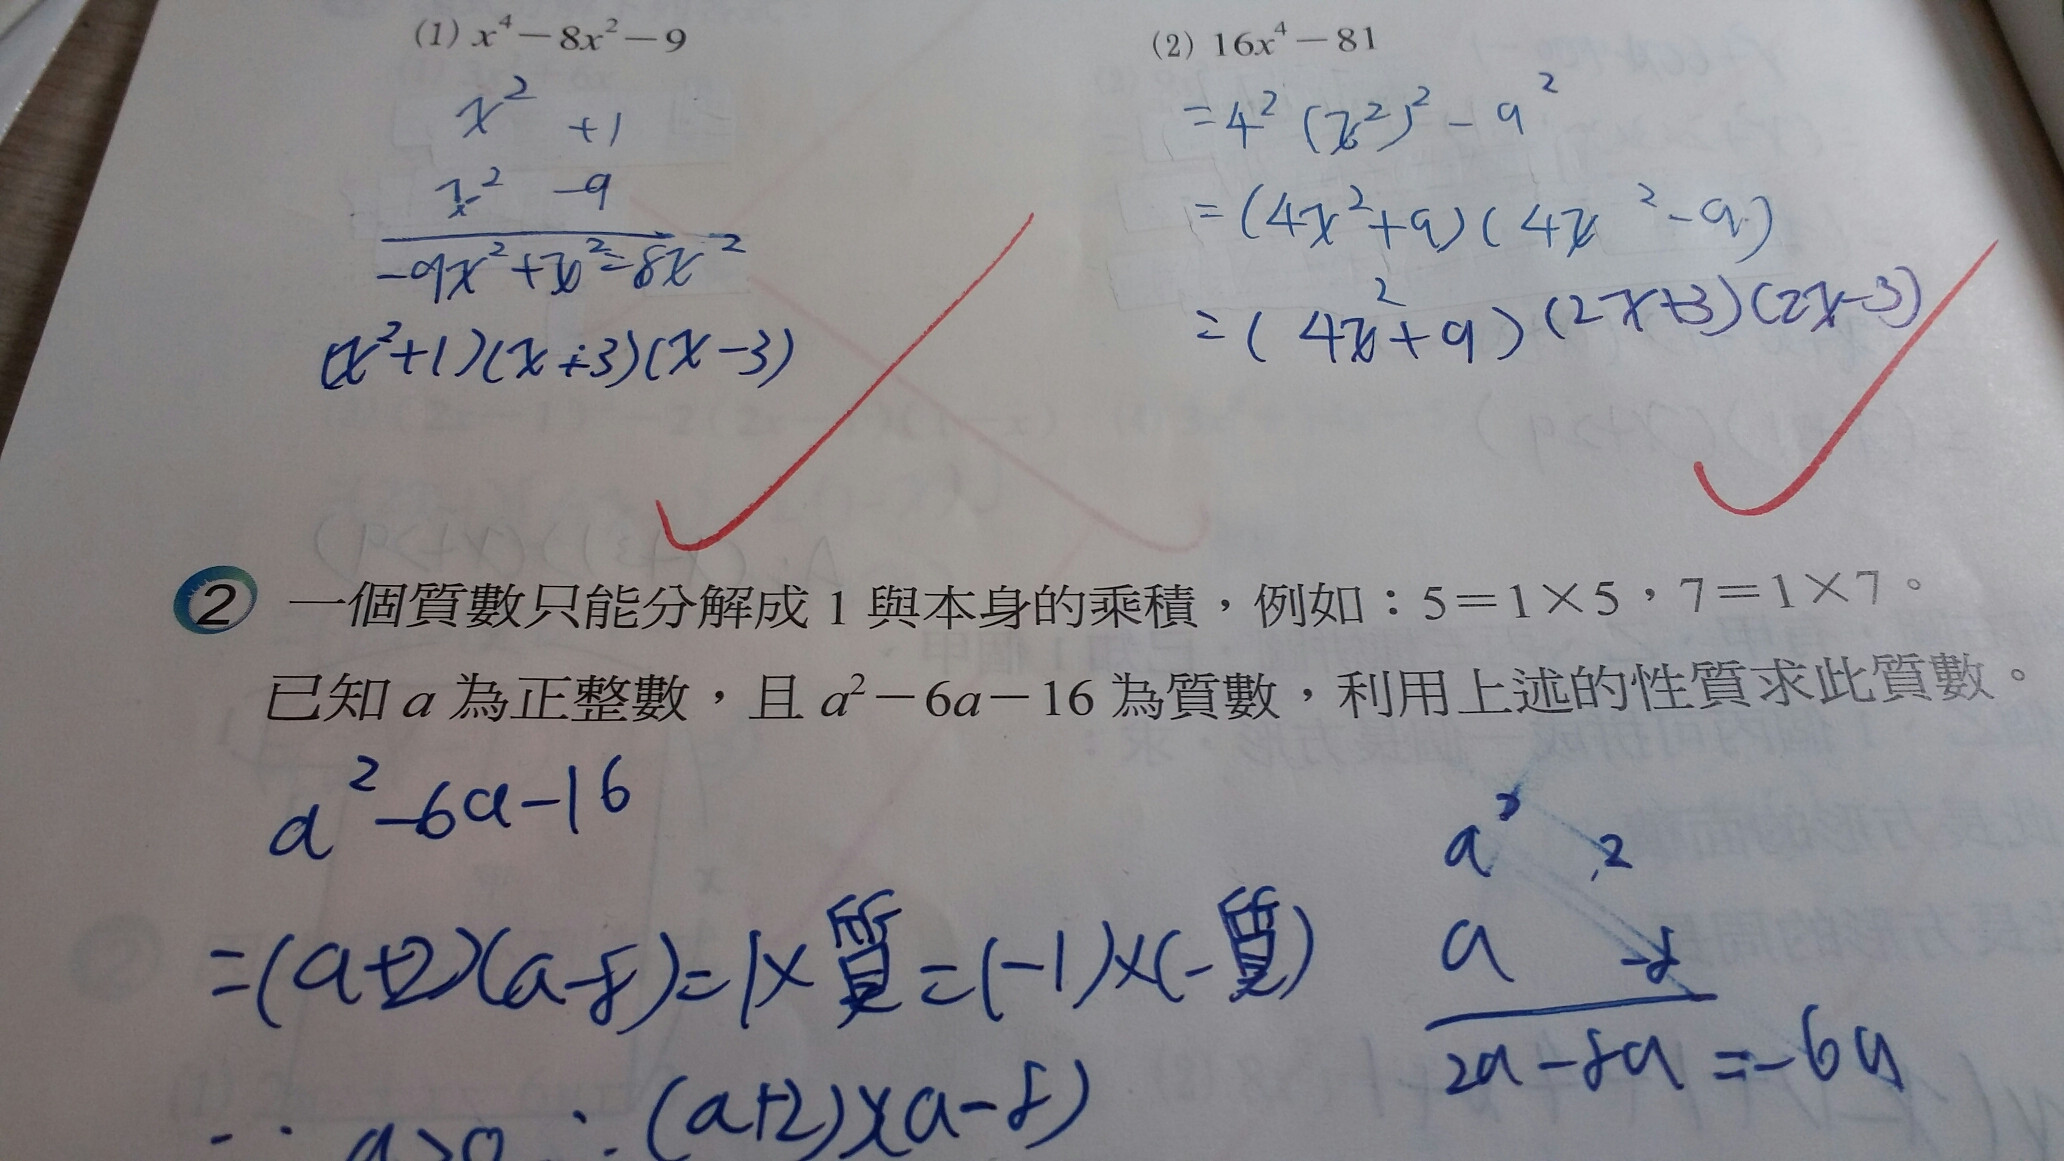 (1) x⁴－8x²－9
x² +1
x² -9
-9x²+x²=8x²
(x²+1)(x+3)(x-3)
(2) 16x⁴－81
=4²(x²)²-9²
=(4x²+9)(4x²-9)
=(4x²+9)(2x+3)(2x-3)
2 一個質數只能分解成 1 與本身的乘積，例如：5＝1×5，7＝1×7。
已知 a 為正整數，且 a²－6a－16 為質數，利用上述的性質求此質數。
a²-6a-16
=(a+2)(a-8)=1×質=(-1)×(-質)
∵ a>0 ∴(a+2)×(a-8)
a 2
a -8
2a-8a=-6a